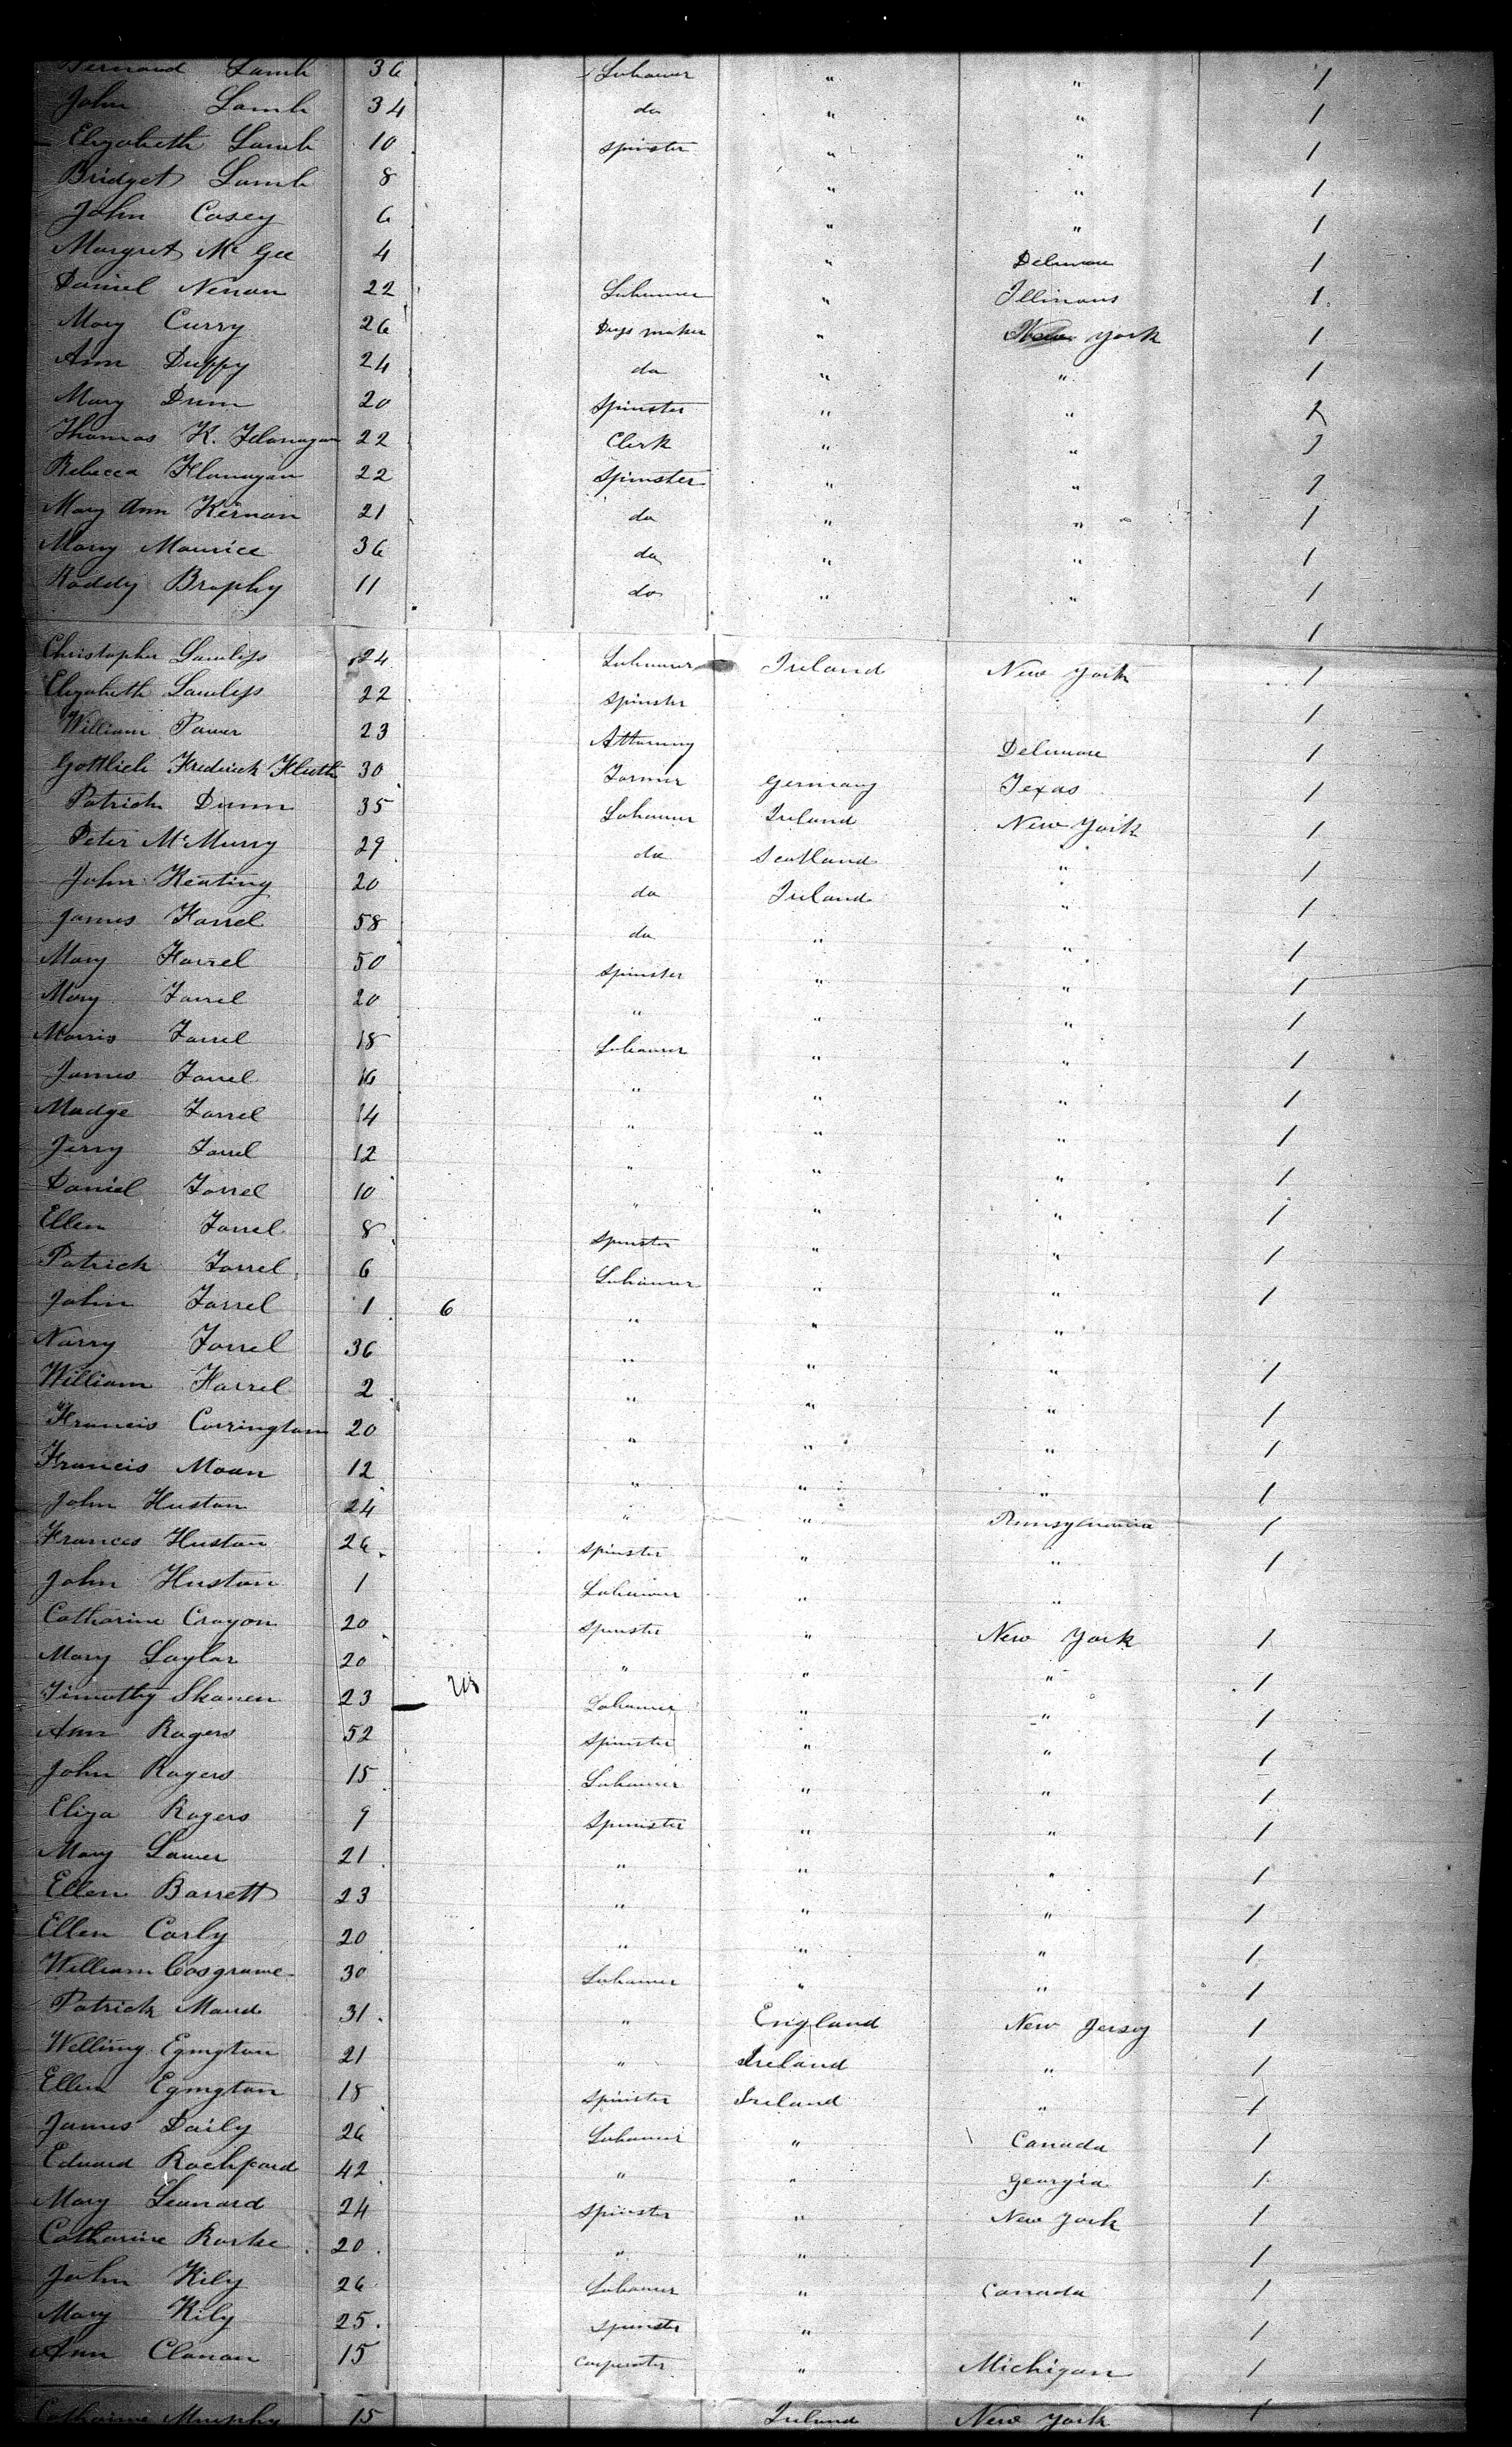 Lamb 36 Labourer " " 1
John Lamb 34 do " " 1
Elizabeth Lamb 10 Spinster " " 1
Bridget Lamb 8 " " 1
John Casey 6 " " 1
Margret Mc Gee 4 " Delware 1
Daniel Nenan 22 Labourer " Illinous 1
Mary Curry 26 maker " New York 1
Ann Duffy 24 do " " 1
Mary Dunn 20 Spinster " " 1
Thomas K. Flanagan 22 Clerk " " 1
Rebecca Flanagan 22 Spinster " " 1
Mary Ann Kernan 21 do " " 1
Mary Maurice 36 do " " 1
Roddy Brophy 11 do " " 1
1
Christopher Lawless 24 Labourer Ireland New York 1
Elizabeth Lawless 22 Spinster 1
William Power 23 Attorney Delware 1
Gottlieb Frederick 30 Farmer Germany Texas 1
Patrick Dunn 35 Labourer Ireland New York 1
Peter McMurry 29 do Scotland " 1
John Keating 20 do Ireland " 1
James Farrel 58 do " " 1
Mary Farrel 50 Spinster " " 1
Mary Farrel 20 " " " 1
Morris Farrel 18 Labourer " " 1
James Farrel 16 " " " 1
Madge Farrel 14 " " " 1
Jerry Farrel 12 " " " 1
Daniel Farrel 10 " " " 1
Ellen Farrel 8 Spinster " " 1
Patrick Farrel 6 Labourer " " 1
John Farrel 1 6 " " "
Narry Farrel 36 " " " 1
William Farrel 2 " " " 1
Francis Carrington 20 " " " 1
Francis Moan 12 " " " 1
John Huston 24 " " Pennsylvania 1
Frances Huston 26 Spinster " " 1
John Huston 1 Labourer " "
Catharine Crayon 20 Spinster " New York 1
Mary Laylor 20 " " " 1
Timothy Skanen 23 Labourer " " 1
Ann Rogers 52 Spinster " " 1
John Rogers 15 Labourer " " 1
Eliza Rogers 9 Spinister " " 1
Mary Lawer 21 " " " 1
Ellen Barrett 23 " " " 1
Ellen Carly 20 " " " 1
William Cosgrawe 30 Labourer " " 1
Patrick Maud 31 " England New Jersey 1
Egington 21 " Ireland " 1
Ellen Egington 18 Spinster Ireland " 1
James Daily 26 Labourer " Canada 1
Edward Rochford 42 " " Georgia 1
Mary Leonard 24 Spinster " New York 1
Catharine Rorke 20 " " 1
John Kily 26 Labourer " Canada 1
Mary Kily 25 Spinster " 1
Ann Clanan 15 Carpenter " Michigan 1
Catharine Murphy 15 Ireland New York 1